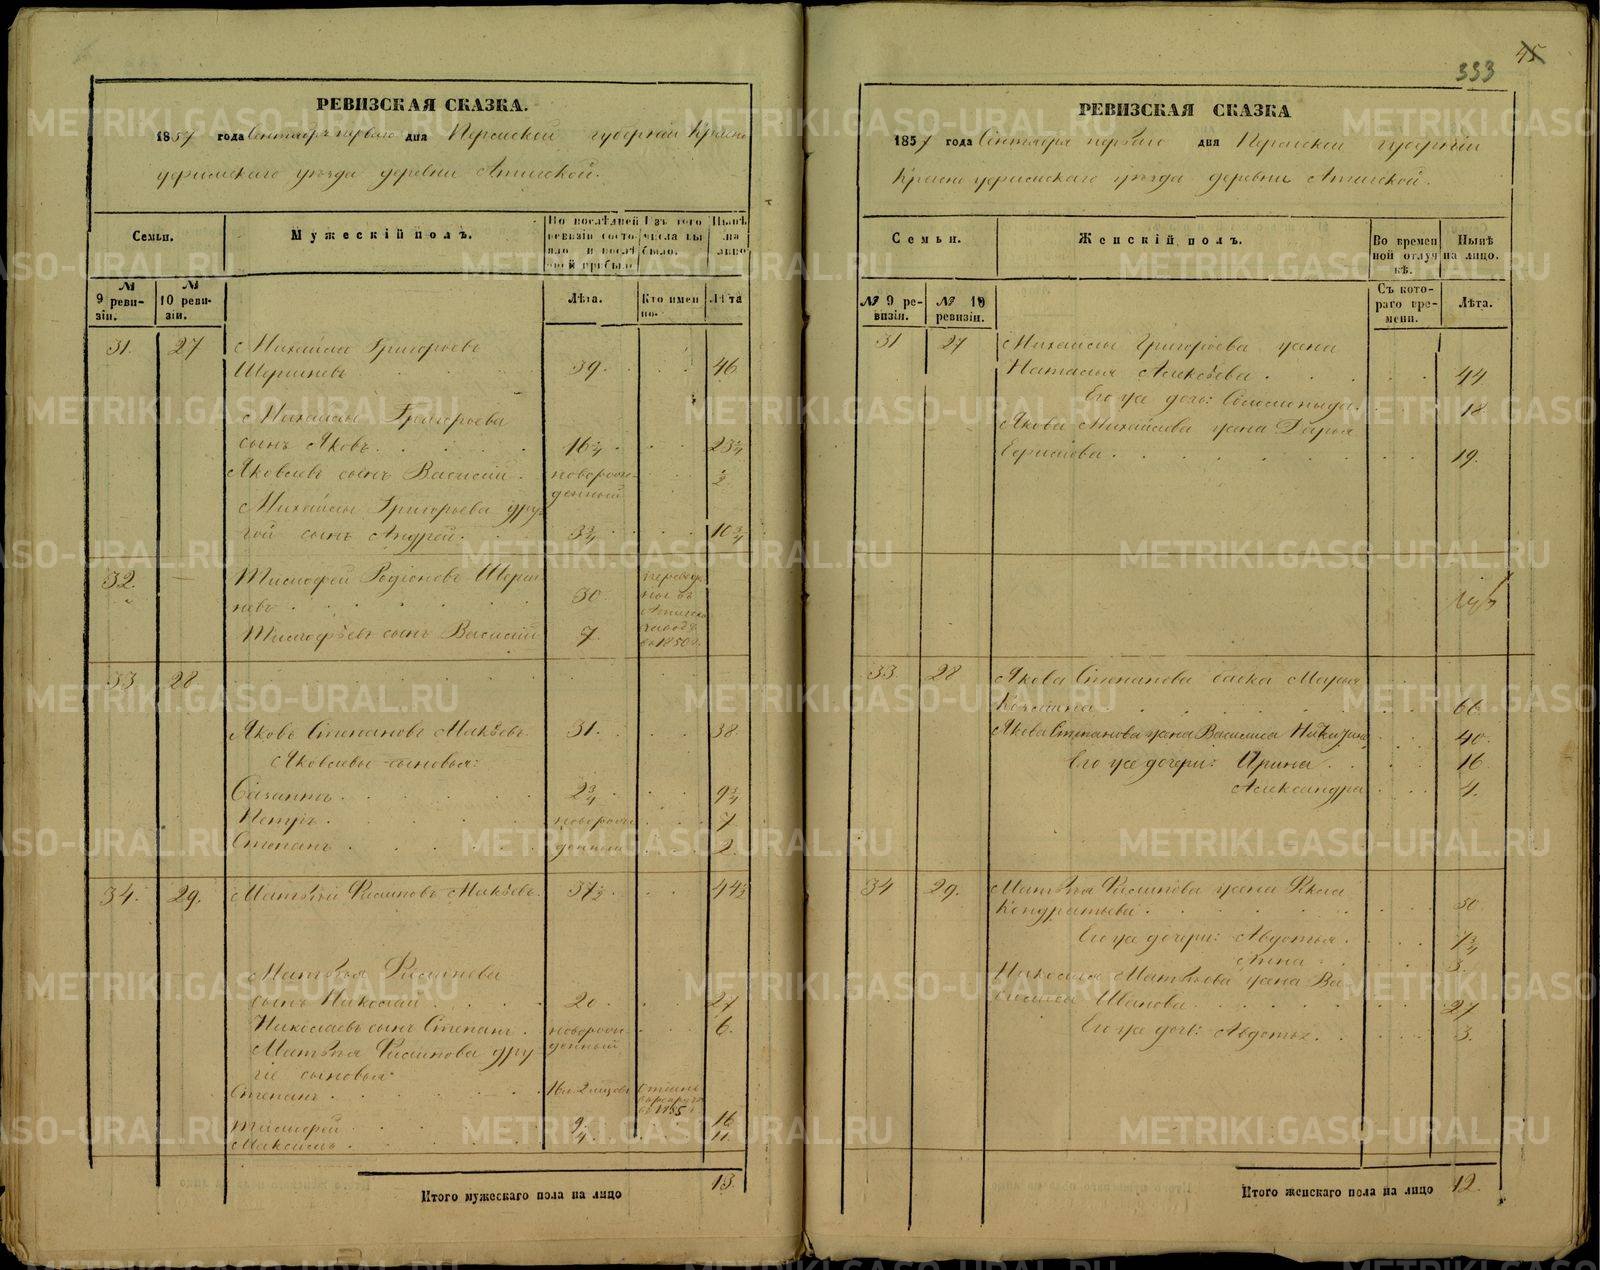 РЕВИЗСКАЯ СКАЗКА.
1857 года Сентября перваго дня Пермской губернии Красно
уфимскаго уѣзда деревни Атигской.
Семьи.
Мужескій полъ.
По послѣдней ревизіи состояло и послѣ ней прибыло
Изъ того числа выбыло.
Нынѣ на лицо
№ 9 ревизіи.
№ 10 ревизіи.
Лѣта.
Кто именно.
Лѣта
31. 27 Михайло Григорьевъ
39 46
Михайлы Григорьева
сынъ Яковъ. 16¾ 23¾
Яковлевъ сынъ Василій. новорож- 2
денный
Михайлы Григорьева дру
гой сынъ Андрей. 3¾ 10¾
32. — Тимофей Родіоновъ
30
Тимофѣевъ сынъ Василій 7 въ 1850 г.
33 28
Яковъ Степановъ Макѣевъ 31. 38.
Яковлевы сыновья:
2¾ 9¾
Петръ. новорож 7
Степанъ. денные 2.
34. 29. Матвѣй Филиповъ Макѣевъ. 37½ 44½
Матвѣя Филипова
сынъ Николай 20 27
Николаевъ сынъ Степанъ. новорож- 6.
денный
Матвѣя Филипова дру
гіе сыновья
Степанъ. въ 1855
Тимофей 9 16
Максимъ. 4. 11.
Итого мужескаго пола на лицо 13.
45
333
РЕВИЗСКАЯ СКАЗКА
1857 года Сентября перваго дня Пермской губерніи
Красно уфимскаго уѣзда деревни Атигской.
Семьи.
Женскій полъ.
Во временной отлучкѣ.
Нынѣ на лицо.
№ 9 ревизія.
№ 10 ревизіи.
Съ котораго времени.
Лѣта.
31 27 Михайлы Григорьева жена
Наталья Алексѣева. 44
Его же дочь: Соломеныда. 18.
Якова Михайлова жена Дарья
19.
33 28 Якова Степанова бабка Марья
66.
Якова Степанова жена Василиса Никитина 40.
Его же дочери: Ирина 16
Александра 4.
34 29. Матвѣя Филипова жена
Кондратьева 50
Его же дочери: Авдотья. 7¾
Анна. 3.
Николая Матвѣева жена Ва
Иванова 27
Его же дочь: Авдотья. 3.
Итого женскаго пола на лицо 12.
METRIKI.GASO-URAL.RU